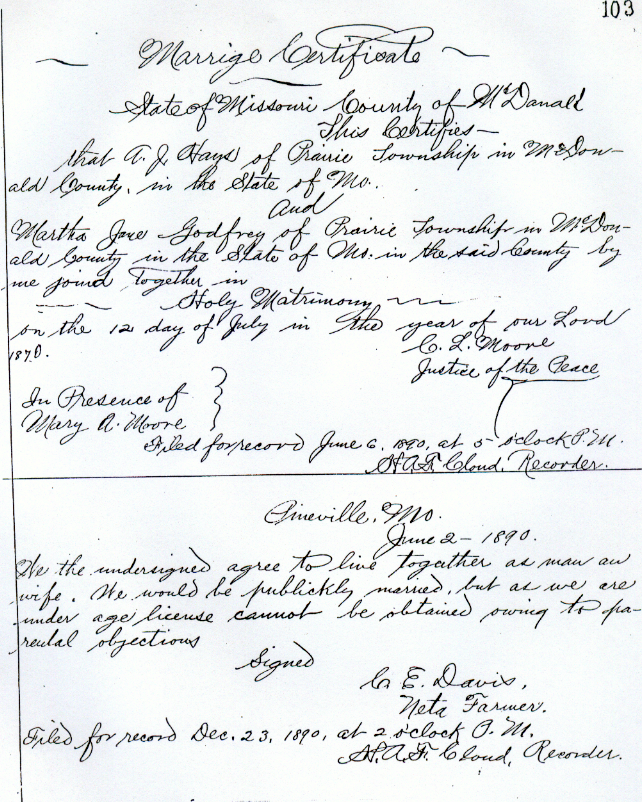 103
Marrige Certificate
State of Missouri County of McDanald
This Certifies—
that A. J. Hays of Prairie Township in McDon-
ald County. in the State of Mo.
And
Martha Jane Godfrey of Prairie Township in McDon-
ald County in the State of Mo. in the said County by
me joined Together in
Holy Matrimony
on the 12 day of July in the year of our Lord
1870.
C. L. Moore
Justice of the Peace
In Presence of
Mary A. Moore
Filed for record June 6, 1890, at 5- o'clock P.M.
H. A. F. Cloud, Recorder.
Pineville, Mo.
June 2 - 1890.
We the undersigned agree to live together as man an
wife. We would be publickly married, but as we are
under age license cannot be obtained owing to pa-
rental objections
Signed
C. E. Davis,
Neta Farmer.
Filed for record Dec. 23, 1890, at 2 o'clock P. M.
H. A. F. Cloud, Recorder.